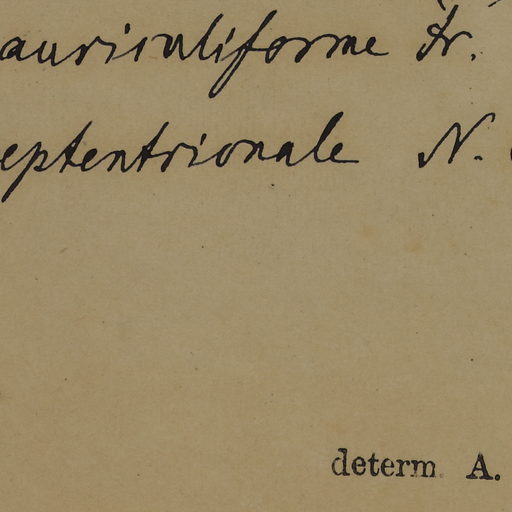 auriculiforme Fr.
eptentrionale N.
determ A.